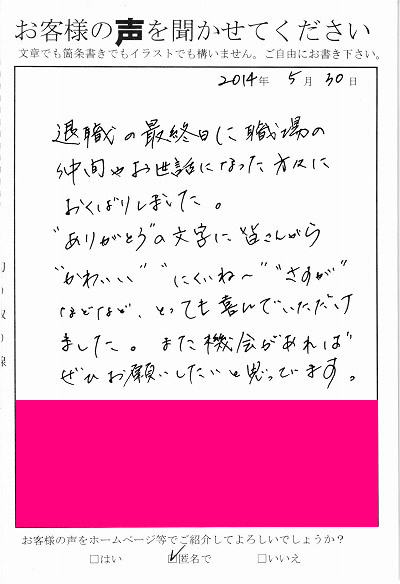 お客様の声を聞かせてください
文章でも箇条書きでもイラストでも構いません。ご自由にお書き下さい。
2014年 5月 30日
退職の最終日に職場の
仲間やお世話になった方々に
おくばりしました。
"ありがとう"の文字に皆さんから
"かわいい" "にくいね〜" "さすが"
などなど、とっても喜んでいただけ
ました。また機会があれば
ぜひお願いしたいと思っています。
お客様の声をホームページ等でご紹介してよろしいでしょうか？
□はい ☑匿名で □いいえ